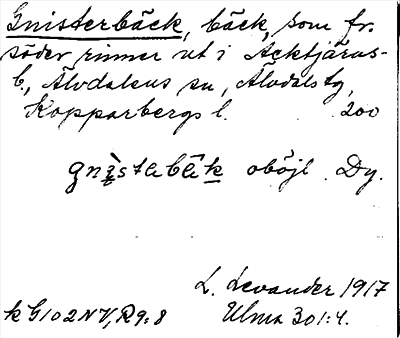 Gnisterbäck, bäck, som fr.
söder rinner ut i Äcktjärns-
b., Älvdalens sn, Älvdals tg,
Kopparbergs l. 200
gnìstebêk oböjl. Dy.
L. Levander 1917
k G102NV, R9:8 Ulma 301:4.